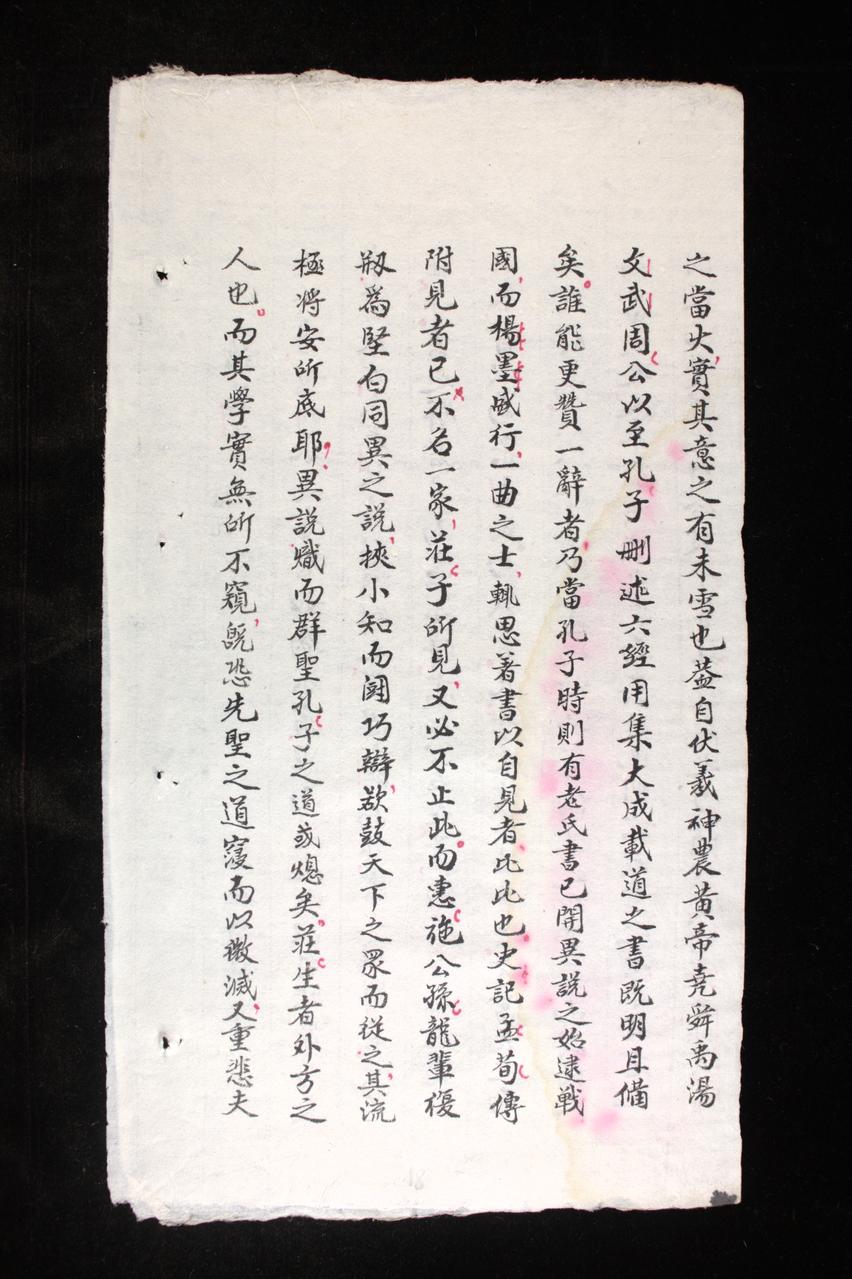 之當火實其意之有未雪也葢自伏羲神農黃帝堯舜禹湯
文武周公以至孔子刪述六經用集大成載道之書既明且備
矣誰能更贊一辭者乃當孔子時則有老氏書已開異說之始逮戰
國而楊墨盛行一曲之士輒思著書以自見者比比也史記孟荀傳
附見者已不名一家莊子所見又必不止此而惠施公孫龍輩復
剏為堅白同異之說挾小知而閧巧辯欲鼓天下之眾而從之其流
極將安所底耶異說熾而群聖孔子之道或熄矣莊生者外方之
人也而其學實無所不窺旣恐先聖之道寖而以微滅又重悲夫